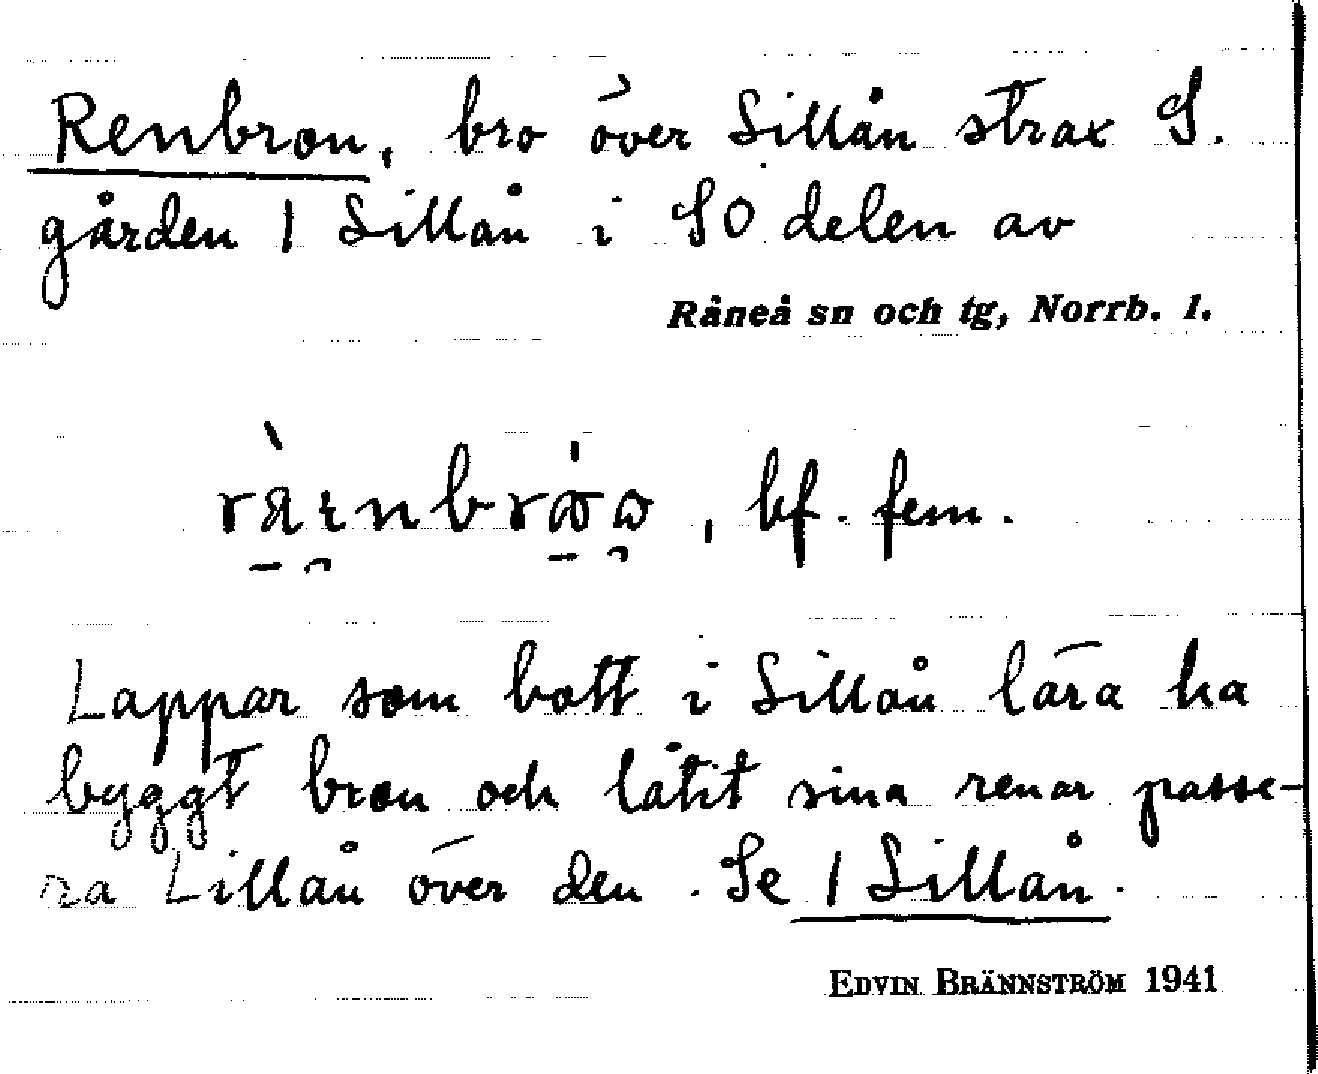 Renbron, bro över Lillån strax S.
gården 1 Lillån i SO delen av
Råneå sn och tg, Norrb. l.
, bf. fem.
Lappar som bott i Lillån lära ha
byggt bron och låtit sina renar passe-
ra Lillån över den. Se 1 Lillån.
EDVIN BRÄNNSTRÖM 1941